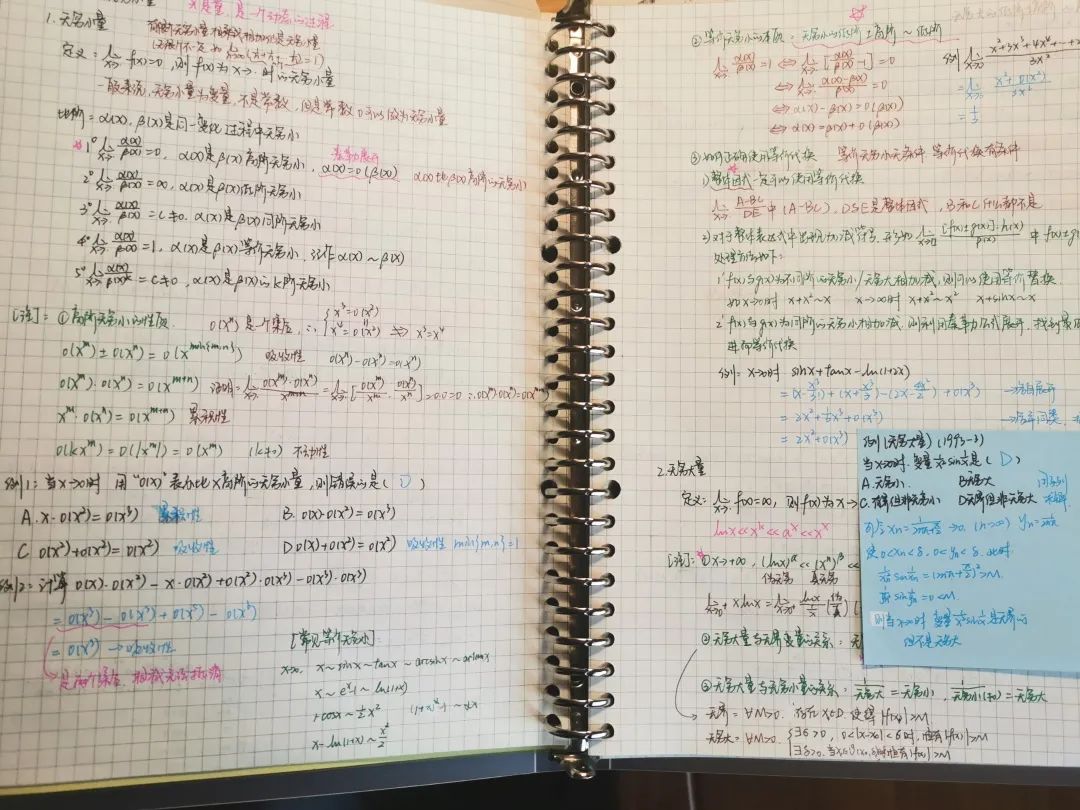 X是量，是一个动态的过程
1. 无穷小量
有限个无穷小量相乘或相加仍是无穷小量
定义：lim x→· f(x)=0，则f(x)为x→·时的无穷小量
一般来说，无穷小量为变量，不是常数，但是常数0可以做为无穷小量
比阶：α(x)，β(x)是同一变化过程中无穷小
1° lim x→· α(x)/β(x)=0，α(x)是β(x)高阶无穷小，α(x)=o(β(x)) α(x)比β(x)高阶的无穷小
2° lim x→· α(x)/β(x)=∞，α(x)是β(x)低阶无穷小
3° lim x→· α(x)/β(x)=C≠0，α(x)是β(x)同阶无穷小
4° lim x→· α(x)/β(x)=1，α(x)是β(x)等价无穷小，记作α(x)~β(x)
5° lim x→· α(x)/β(x)^k=C≠0，α(x)是β(x)的k阶无穷小
[注]：①高阶无穷小的性质 o(x^n)是一个集合，∴ {x³=o(x²) x⁴=o(x²) ⇏ x³=x⁴
o(x^m)±o(x^n)=o(x^min{m,n}) 吸收性 o(x^n)-o(x^n)=o(x^n)
o(x^m)·o(x^n)=o(x^(m+n)) 证明：lim x→· o(x^m)·o(x^n)/x^(m+n)=lim x→·[o(x^m)/x^m·o(x^n)/x^n]=0·0=0 ∴o(x^m)·o(x^n)=o(x^(m+n))
x^m·o(x^n)=o(x^(m+n)) 累积性
o(kx^m)=o(x^m) (k≠0) 不动性
例1：当x→0时 用“o(x)”表示比x高阶的无穷小量，则错误的是（D）
A. x·o(x²)=o(x³) 累积性 B. o(x)·o(x²)=o(x³)
C o(x²)+o(x²)=o(x²) 吸收性 D o(x)+o(x²)=o(x²) 吸收性 min{m,n}=1
例2：计算 o(x)·o(x²)-x·o(x²)+o(x²)·o(x³)-o(x³)·o(x³)
=o(x³)-o(x³)+o(x⁵)-o(x⁶)
=o(x³) →吸收性
是两个集合，相减无法抵消
[常见等价无穷小]：
x→0，x~sinx~tanx~arcsinx~arctanx
x~e^x-1~ln(1+x)
1-cosx~½x² (1+x)^α-1~αx
x-ln(1+x)~x²/2
②等价无穷小的本质：无穷小的低阶±高阶~低阶
lim x→· α(x)/β(x)=1 ⇔ lim x→·[α(x)/β(x)-1]=0
⇔ lim x→· (α(x)-β(x))/β(x)=0
⇔ α(x)-β(x)=o(β(x))
⇔ α(x)=β(x)+o(β(x))
③如何正确使用等价代换 等价无穷小无条件 等价代换有条件
1)整体因式一定可以使用等价代换
lim x→· (A-BC)/DE 中 (A-BC)，D与E是整体因式，B和C什么都不是
2)对于整体表达式中出现加减符号，形如 lim x→□ [f(x)±g(x)]·h(x)/p(x) 中 f(x)±g(
处理方法如下：
1' f(x)与g(x)为不同阶的无穷小/无穷大相加减，则可以使用等价替换
如x→0时 x+x²~x x→∞时 x+x²~x² x+sinx~x
2' f(x)与g(x)为同阶的无穷小相加减，则利用泰勒公式展开，找到最
进行等价代换
例：x→0时 sinx+tanx-ln(1+2x)
=2x²+o(x²)
2.无穷大量
定义：lim x→· f(x)=∞，则f(x)为x→
lnx<<x^k<<a^x<<x^x
[注]：①x→+∞，(lnx)^α<<(x^n)^β<<
②无穷大量与无界变量的关系：无
③无穷大量与无穷小量的关系：1/无穷大=无穷小，1/无穷小(≠0)=无穷大
无界=∀M>0，存在x∈D，使得|f(x)|>M
无穷大=∀M>0，∃δ>0，0<|x-x₀|<δ时，恒有|f(x)|>M
例(无穷大量)(1993-3)
当x→0时，变量 1/x² sin 1/x 是（D）
A.无穷小 B.无穷大
C.有界但非无穷小 D.无界但非无穷大
使0<xn<δ，0<yn<δ，此时
则当x→0时 变量 1/x² sin 1/x 是无界的
但不是无穷大